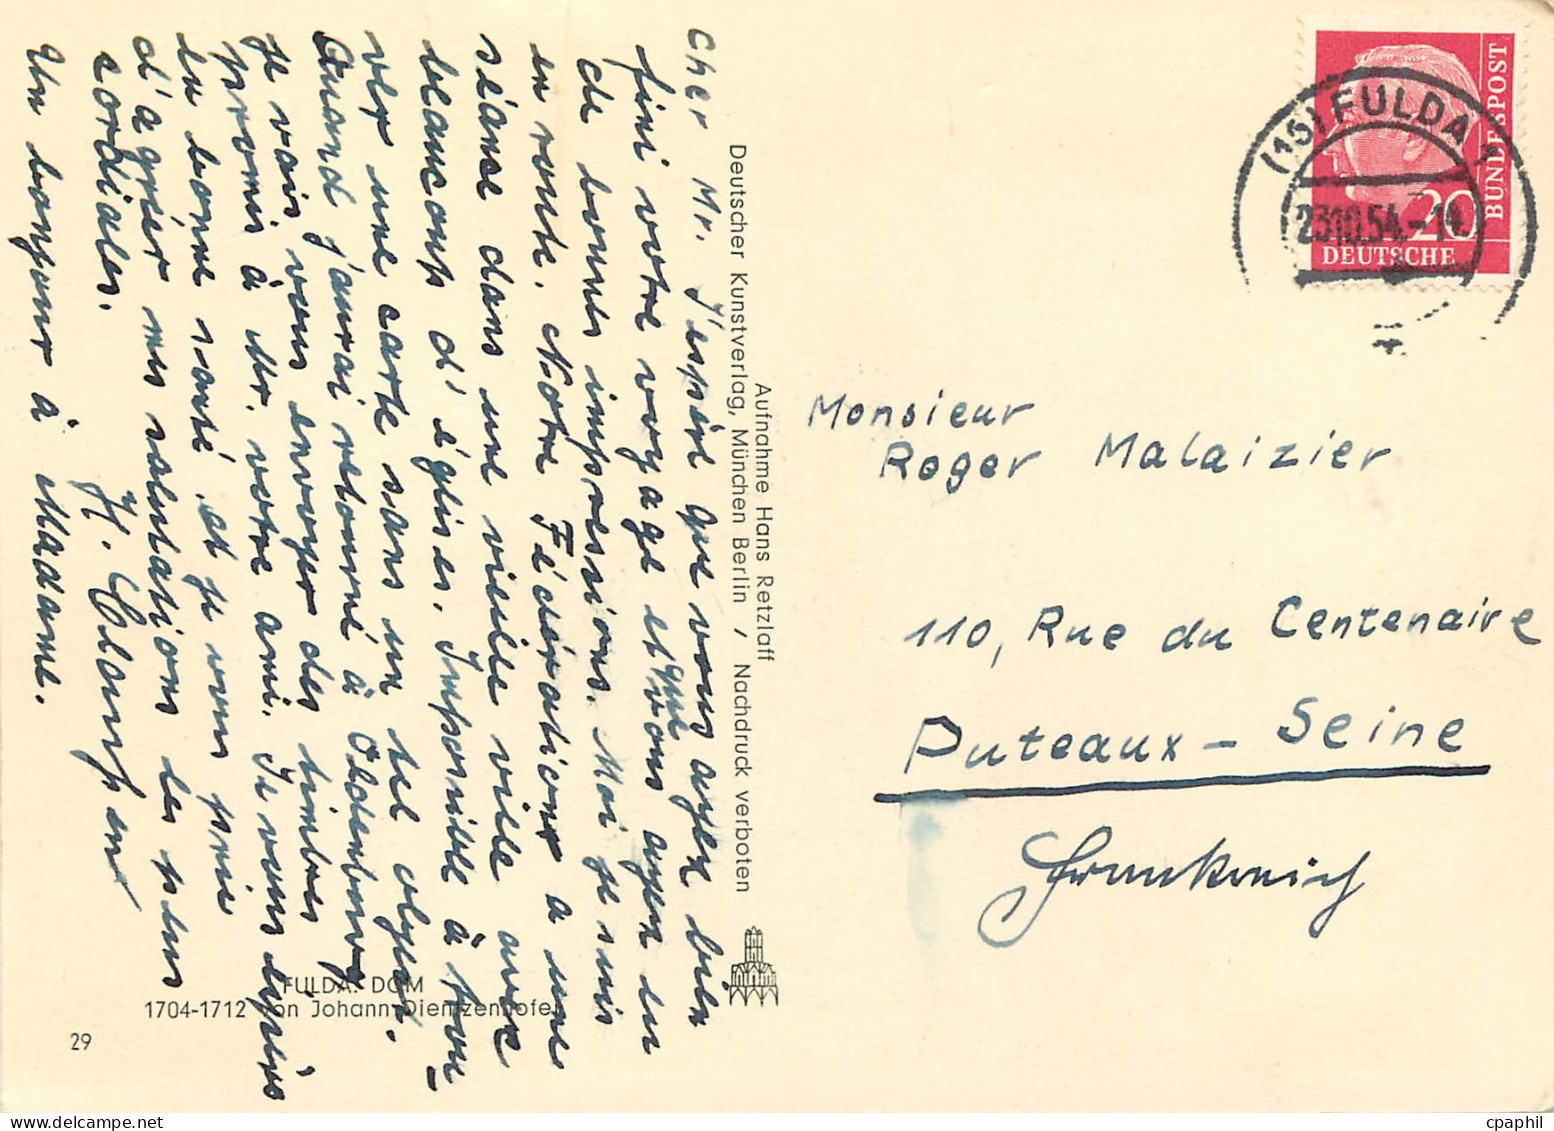 Cher Mr. J'espère que vous ayez bien
fini votre voyage et que vous ayez eu
de bonnes impressions. Moi je suis
en route. Notre Fédération a une
séance dans une vieille ville avec
beaucoup d'églises. Impossible à trou-
ver une carte sans un tel objet.
Quand j'aurai retourné à Oldenburg
je vais vous envoyer des timbres
promis à Mr. votre ami. Je vous espère
en bonne santé, et je vous prie
d'agréer mes salutations les plus
cordiales.
Un bonjour à Madame.
Aufnahme Hans Retzlaff
Deutscher Kunstverlag, München Berlin / Nachdruck verboten
FULDA. DOM
1704-1712 von Johann Dientzenhofer
29
(16) FULDA
23.10.54.-14
20
DEUTSCHE
BUNDESPOST
Monsieur
Roger Malaizier
110, Rue du Centenaire
Puteaux - Seine
Frankreich
cpaphil